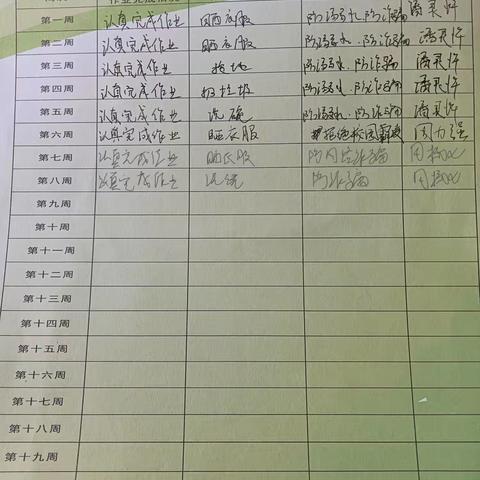 第一周 认真完成作业 晒衣服 防溺水,防诈骗
第二周 认真完成作业 晒衣服 防溺水.防诈骗
第三周 认真完成作业 拖地 防溺水.防诈骗
第四周 认真完成作业 扫垃圾 防溺水.防诈骗
第五周 认真完成作业 洗碗 防溺水.防诈骗
第六周 认真完成作业 晒衣服 拒绝校园霸凌 周力强
第七周 认真完成作业 晒衣服 防网络诈骗
第八周 认真完成作业 防诈骗
第九周
第十周
第十一周
第十二周
第十三周
第十四周
第十五周
第十六周
第十七周
第十八周
第十九周